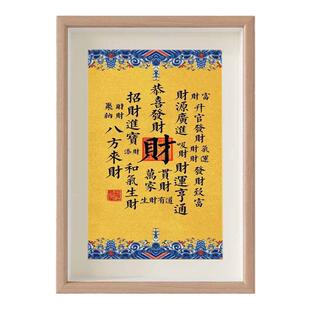 富
財
升官發財
氣運
財
財
發財致富
財源廣進
吸財
財運亨通
恭喜發財
財
貫財
萬家
生財有道
招財進寶
添財
和氣生財
財財
八方來財